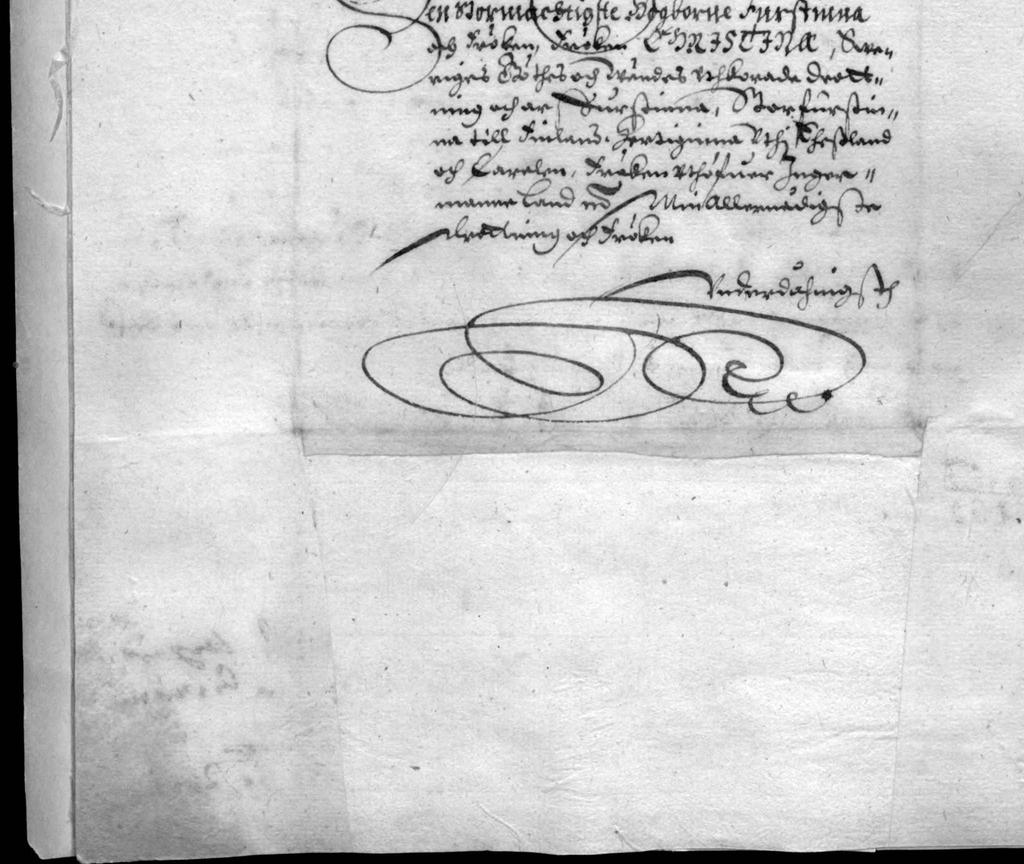 Den Stormächtigste Högborne Furstinna
och Fröken, Fröken CHRISTINÆ, Swe-
riges Göthes och Wändes Uthkorade drott-
ning och arf Furstinna, Storfurstin-
na till Finland, Hertiginna Uthj Ehestland
och Carelen, Fröken Uthöfuer Inger-
manneland etc Min Allernådigste
drottning och Fröken
Underdåhnigst